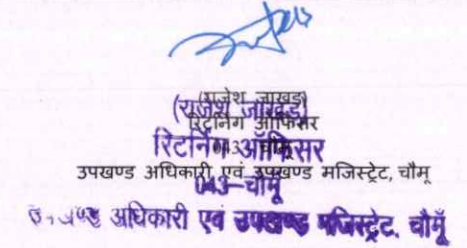 (राजेश जाखड़)
रिटर्निंग ऑफिसर
043-चौमू
उपखण्ड अधिकारी एवं उपखण्ड मजिस्ट्रेट, चौमू
(राजेश जाखड़)
रिटर्निंग ऑफिसर
043-चौमूँ
अधिकारी एवं उपखण्ड मजिस्ट्रेट, चौमूँ